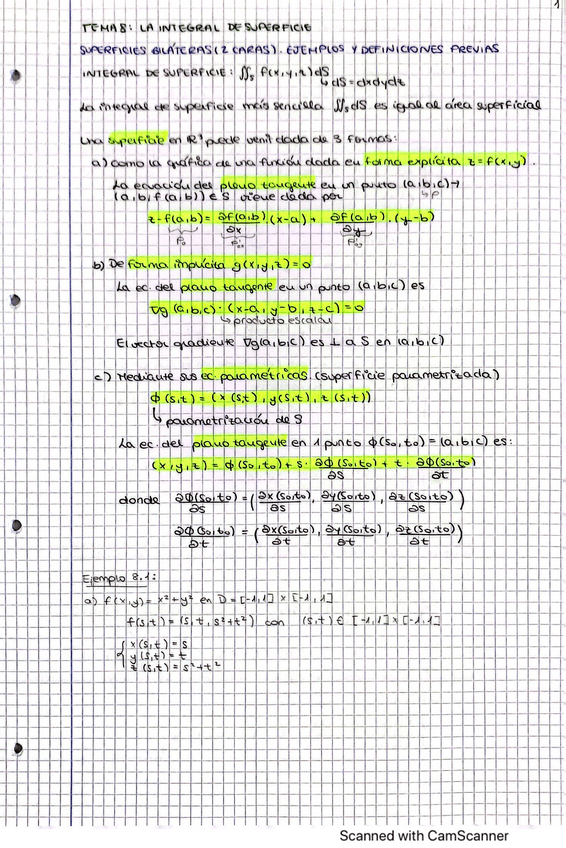 1
TEMA 8: LA INTEGRAL DE SUPERFICIE
SUPERFICIES BILÁTERAS (2 CARAS). EJEMPLOS Y DEFINICIONES PREVIAS
INTEGRAL DE SUPERFICIE: ∬s f(x,y,z)dS
↳ dS=dxdydz
La integral de superficie más sencilla ∬s dS es igual al área superficial
Una superficie en R³ puede venir dada de 3 formas:
a) como la gráfica de una función dada en forma explícita z=f(x,y).
La ecuación del plano tangente en un punto (a,b,c)→
↳P
(a,b,f(a,b)) ∈ S viene dada por
z-f(a,b) = ∂f(a,b)/∂x · (x-a) + ∂f(a,b)/∂y · (y-b)
b) De forma implícita g(x,y,z)=0
La ec. del plano tangente en un punto (a,b,c) es
∇g(a,b,c)·(x-a, y-b, z-c)=0
↳ producto escalar
El vector gradiente ∇g(a,b,c) es ⊥ a S en (a,b,c)
c) Mediante sus ec. paramétricas. (superficie parametrizada)
ϕ(s,t) = (x(s,t), y(s,t), z(s,t))
↳ parametrización de S
La ec. del plano tangente en 1 punto ϕ(so,to) = (a,b,c) es:
(x,y,z) = ϕ(so,to) + s· ∂ϕ(so,to)/∂s + t· ∂ϕ(so,to)/∂t
donde ∂ϕ(so,to)/∂s = (∂x(so,to)/∂s, ∂y(so,to)/∂s, ∂z(so,to)/∂s)
∂ϕ(so,to)/∂t = (∂x(so,to)/∂t, ∂y(so,to)/∂t, ∂z(so,to)/∂t)
Ejemplo 8.1:
a) f(x,y) = x²+y² en D=[-1,1]×[-1,1]
f(s,t) = (s,t,s²+t²) con (s,t) ∈ [-1,1]×[-1,1]
{ x(s,t) = s
y(s,t) = t
z(s,t) = s²+t²
Scanned with CamScanner